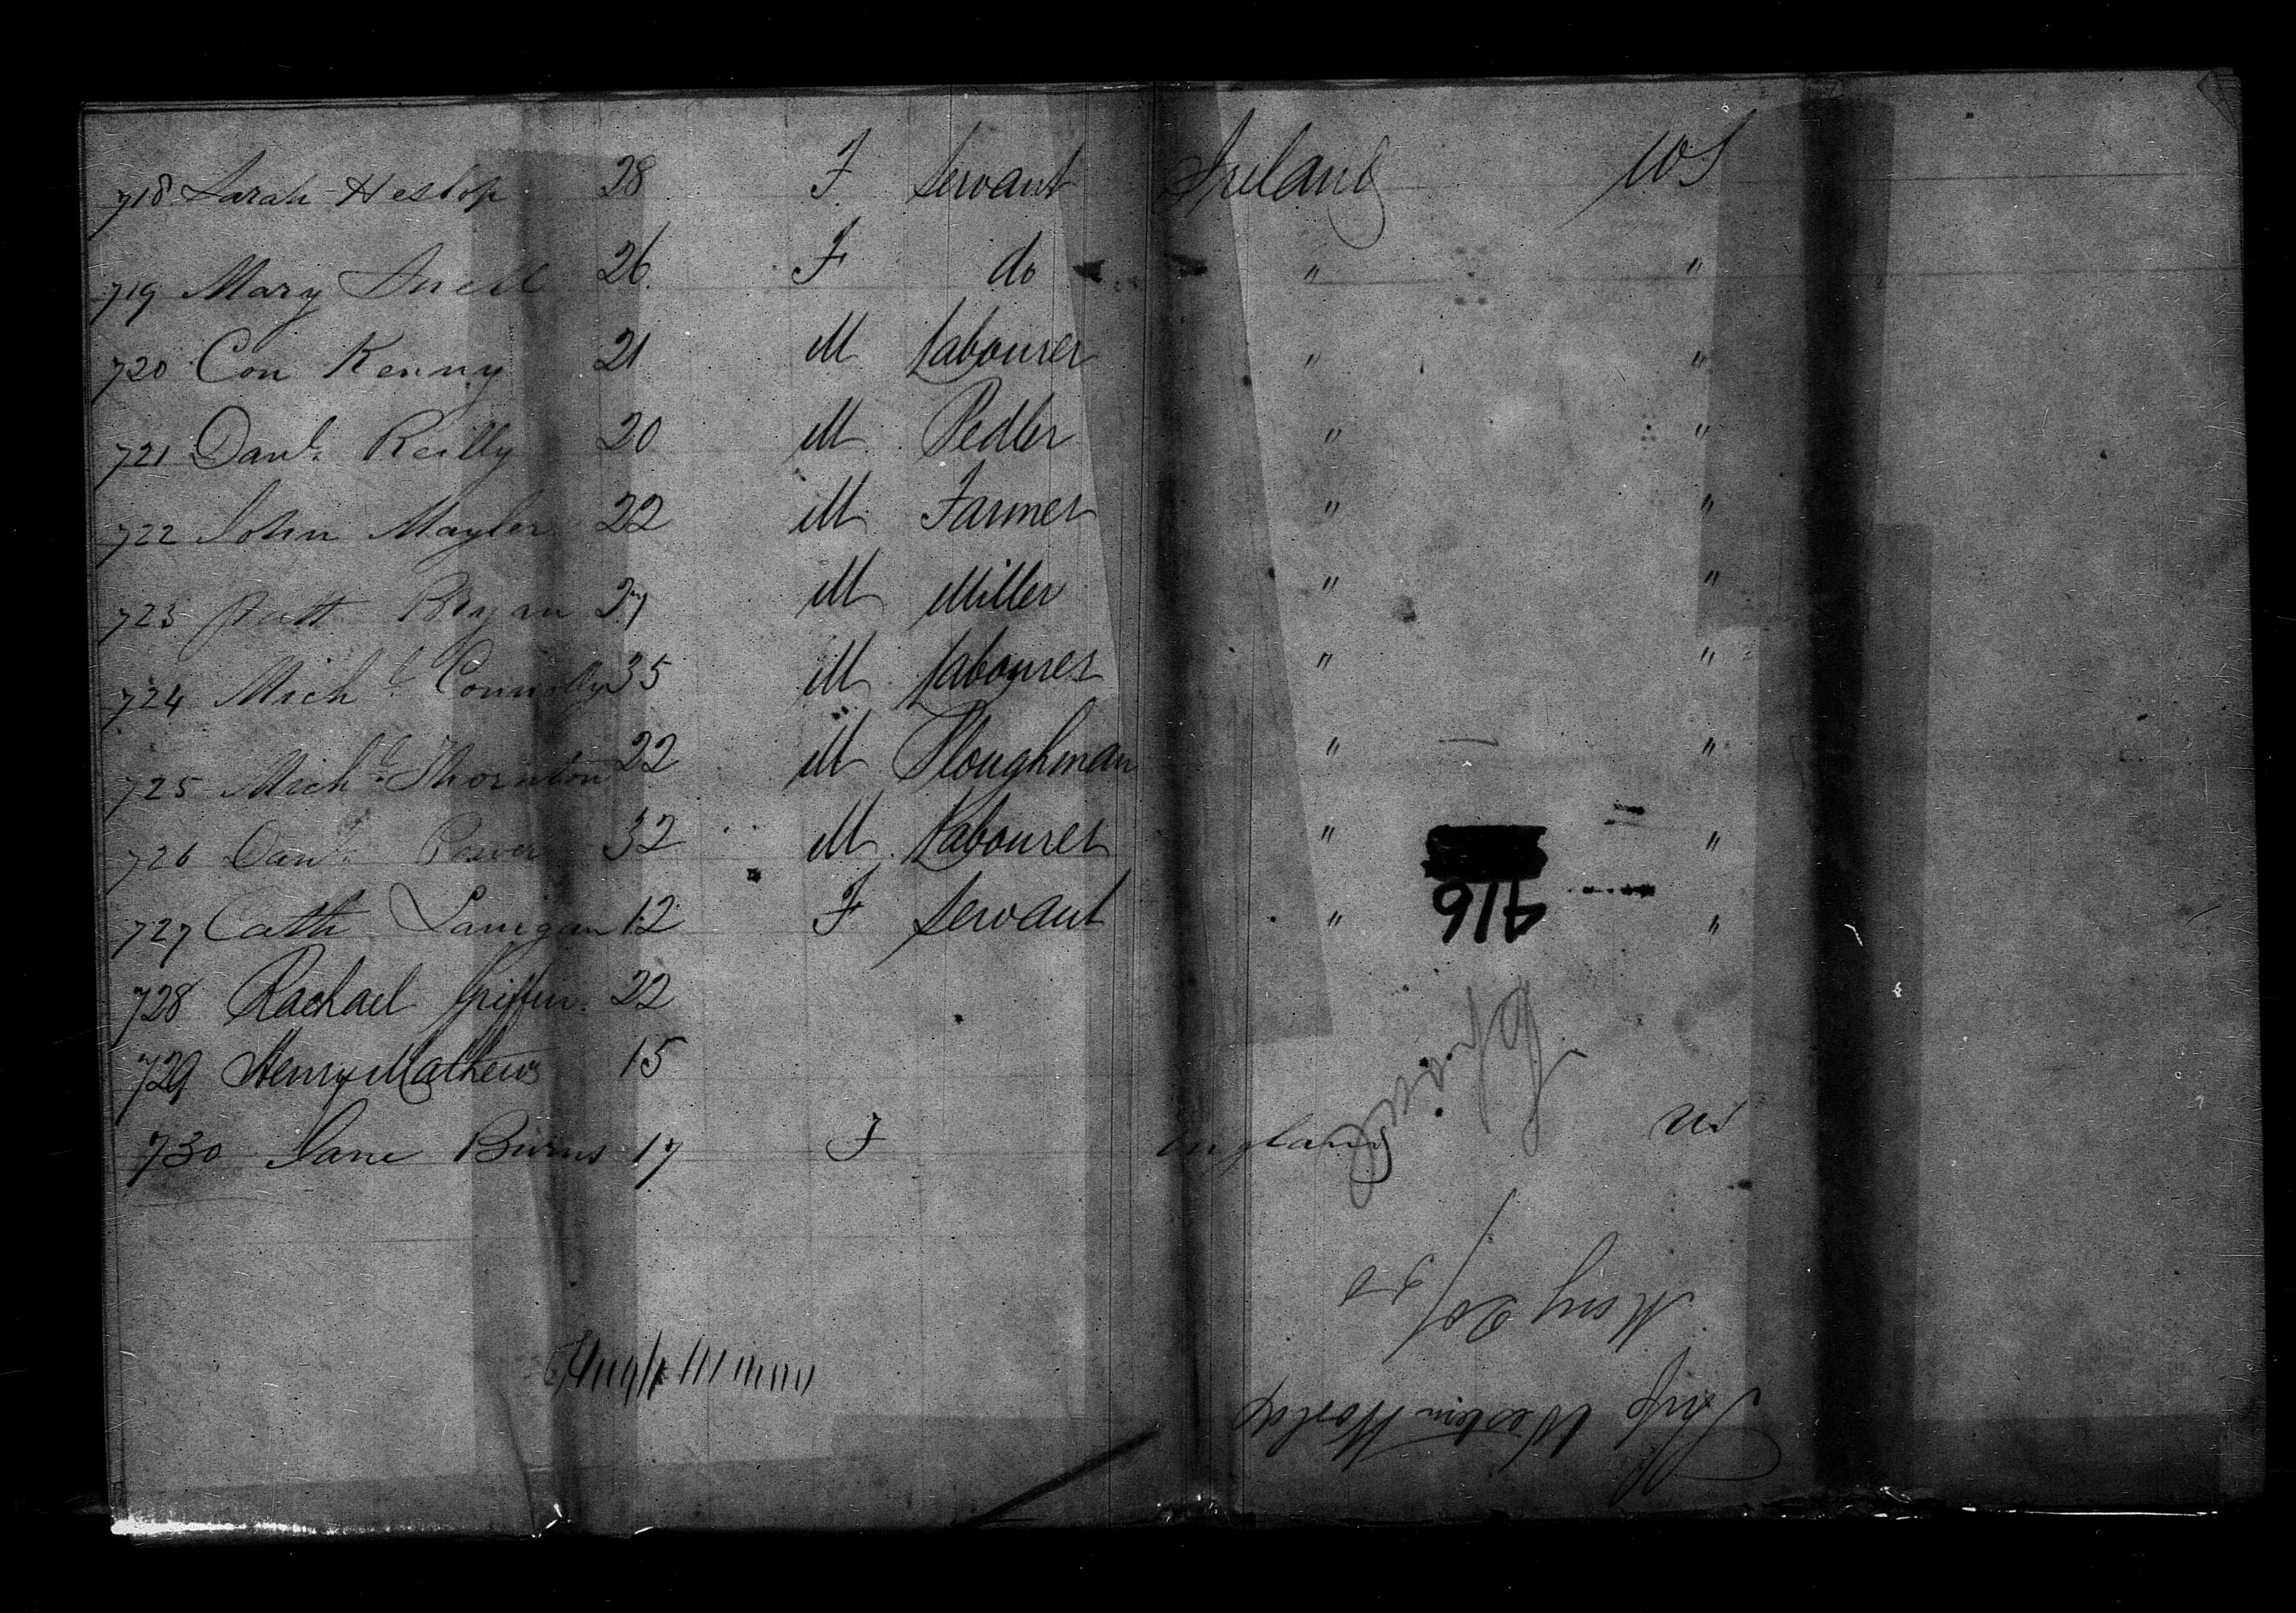 718 Sarah Heslop 28 F Servant Ireland US
719 Mary 26 F do " "
720 Con Kenny 21 M Labourer " "
721 Danl. Reilly 20 M Pedler " "
722 John Mayler 22 M Farmer " "
723 Patt Bryan 27 M Miller " "
724 Michl. Connolly 35 M Labourer " "
725 Michl. Thornton 22 M Ploughman " "
726 Danl. Power 32 M Labourer " "
727 Cath Lanigan 12 F Servant " "
728 Rachael Griffin 22
729 Henry Mathews 15
730 Jane Burns 17 F England US
416
May 20/
Ship Western World